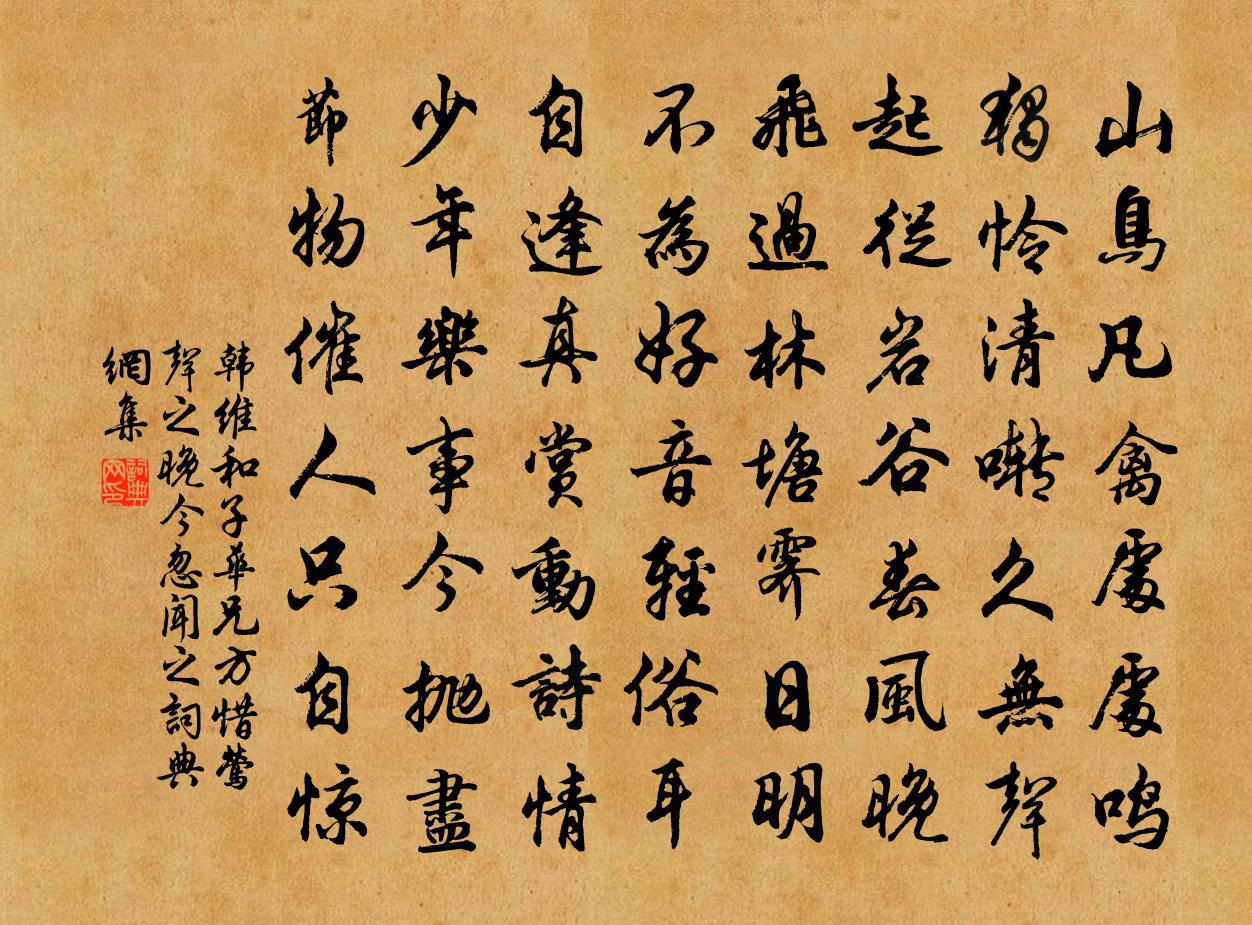 山鳥凡禽處處鳴
獨憐清囀久無聲
起從岩谷春風晚
飛過林塘霽日明
不為好音輕俗耳
自逢真賞動詩情
少年樂事今拋盡
節物催人只自惊
韩维和子華兄方惜鶯
聲之晚今忽聞之詞典
網集
詞典
网印